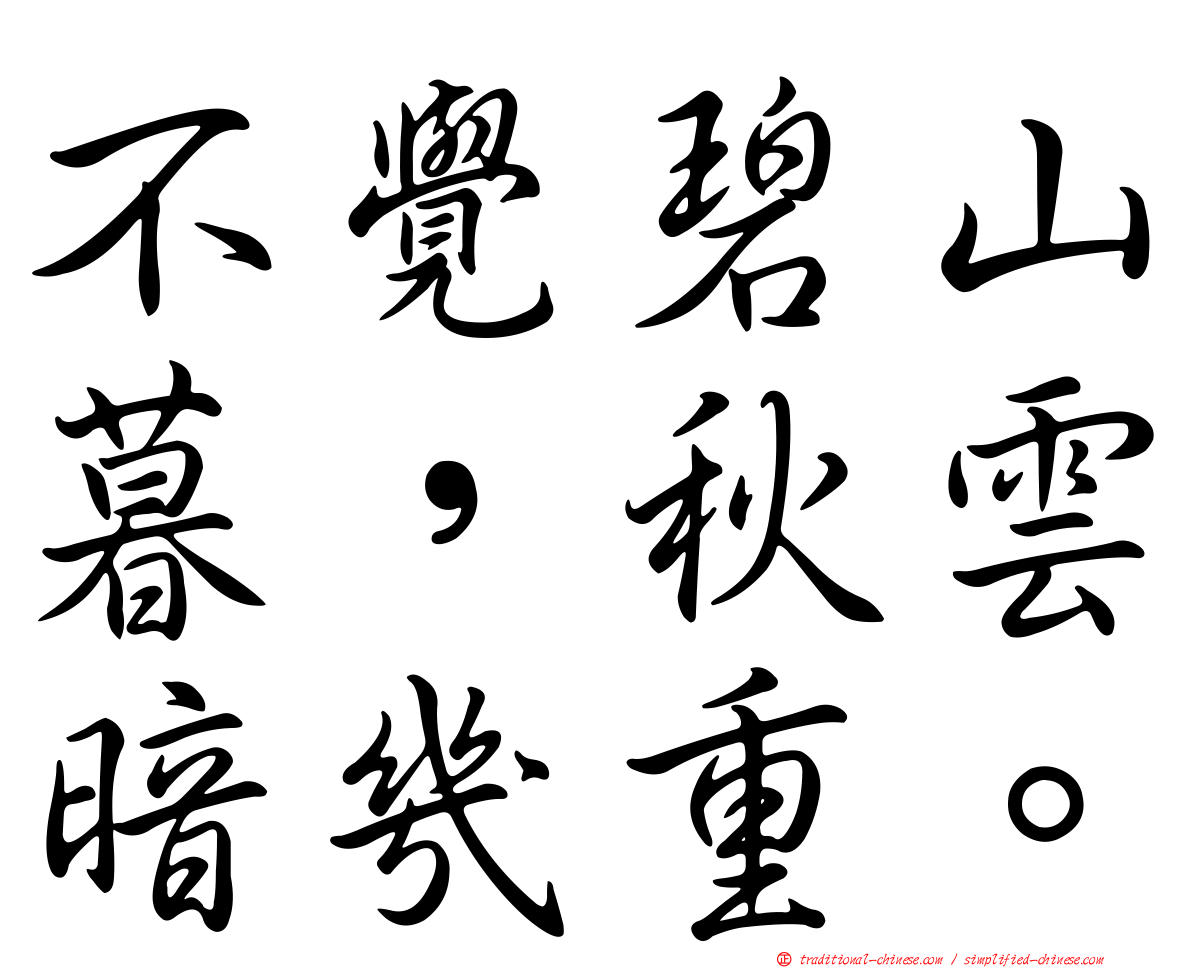 不覺碧山
暮，秋雲
暗幾重。
㊣ traditional-chinese.com / simplified-chinese.com